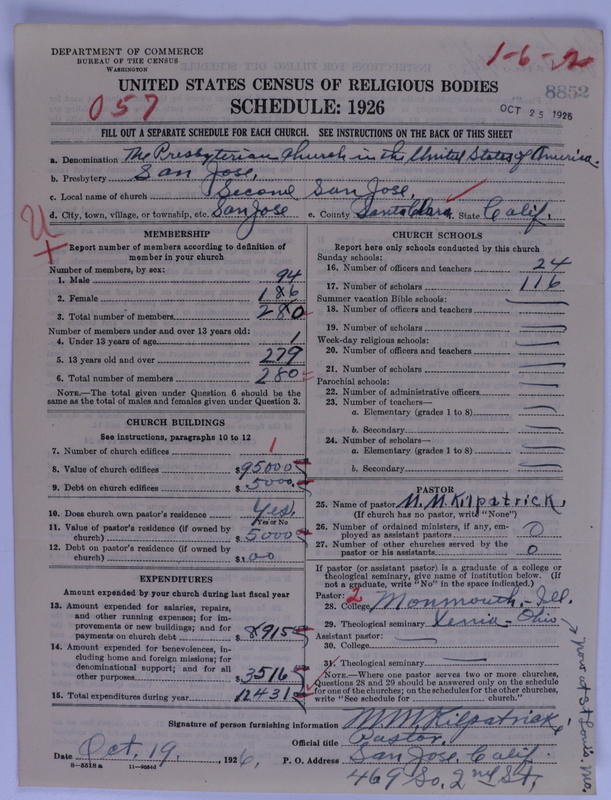 DEPARTMENT OF COMMERCE
BUREAU OF THE CENSUS
WASHINGTON
1-6-2
UNITED STATES CENSUS OF RELIGIOUS BODIES
8852
057
SCHEDULE: 1926
OCT 25 1926
FILL OUT A SEPARATE SCHEDULE FOR EACH CHURCH. SEE INSTRUCTIONS ON THE BACK OF THIS SHEET
a. Denomination The Presbyterian Church in the United States of America.
b. Presbytery San Jose,
c. Local name of church Second San Jose,
d. City, town, village, or township, etc. San Jose e. County Santa Clara f. State Calif.
U
MEMBERSHIP
Report number of members according to definition of
member in your church
Number of members, by sex:
1. Male 94
2. Female 186
3. Total number of members 280
Number of members under and over 13 years old:
4. Under 13 years of age 1
5. 13 years old and over 279
6. Total number of members 280
NOTE.—The total given under Question 6 should be
same as the total of males and females given under Question 3.
CHURCH BUILDINGS
See instructions, paragraphs 10 to 12
7. Number of church edifices 1
8. Value of church edifices $95000
9. Debt on church edifices $5000
10. Does church own pastor's residence? Yes.
Yes or No
11. Value of pastor's residence (if owned by
church) $5000
12. Debt on pastor's residence (if owned by
church) $000
EXPENDITURES
Amount expended by your church during last fiscal year
13. Amount expended for salaries, repairs,
and other running expenses; for im-
provements or new buildings; and for
payments on church debt $8915
14. Amount expended for benevolences, in-
cluding home and foreign missions; for
denominational support; and for all
other purposes $3516
15. Total expenditures during year 12431
CHURCH SCHOOLS
Report here only schools conducted by this church
Sunday schools:
16. Number of officers and teachers 24
17. Number of scholars 116
Summer vacation Bible schools:
18. Number of officers and teachers
19. Number of scholars
Week-day religious schools:
20. Number of officers and teachers
21. Number of scholars
Parochial schools:
22. Number of administrative officers
23. Number of teachers—
a. Elementary (grades 1 to 8)
b. Secondary
24. Number of scholars—
a. Elementary (grades 1 to 8)
b. Secondary
PASTOR
25. Name of pastor M. M. Kilpatrick,
(If church has no pastor, write "None")
26. Number of ordained ministers, if any, em-
ployed as assistant pastors 0
27. Number of other churches served by the
pastor or his assistants 0
If pastor (or assistant pastor) is a graduate of a college or
theological seminary, give name of institution below. (If
not a graduate, write "No" in the space indicated.)
Pastor: 2
28. College Monmouth, - Ill.
29. Theological seminary Xenia - Ohio
Assistant pastor:
30. College
31. Theological seminary
NOTE.—Where one pastor serves two or more churches,
Questions 28 and 29 should be answered only on the schedule
for one of the churches; on the schedules for the other churches,
write "See schedule for church."
now at St Louis. Mo.
Signature of person furnishing information M. M. Kilpatrick
Official title Pastor.
Date Oct. 19, 1926. P. O. Address San Jose, Calif.
8—5518a
469 So. 2nd St,